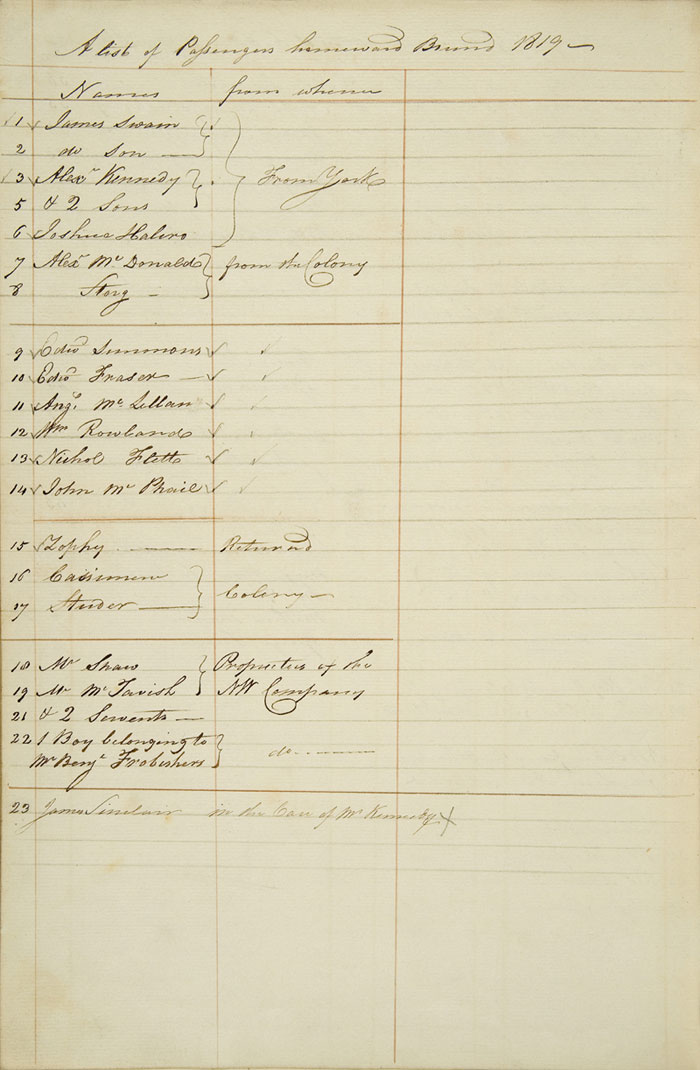 A list of Passengers homeward Bound 1819
Names from whence
1 James Swain
2 do Son
3 Alexr Kennedy From York
5 & 2 Sons
6 Joshua Halcro
7 Alexr Mc Donald from the Colony
8 Storg
9 Edwd Simmons
10 Edwd Fraser
11 Angs. Mc Lellan
12 Wm Rowland
13 Nichol Flett
14 John Mc Phail
15 Zophy Returnd
16
17 Studer Colony
18 Mr Shaw Proprietors of the
19 Mr Mc Tavish NW Company
21 & 2 Servents
22 1 Boy belonging to
Mr Benjn Frobishers do
23 James Sinclair in the Care of Mr Kennedy